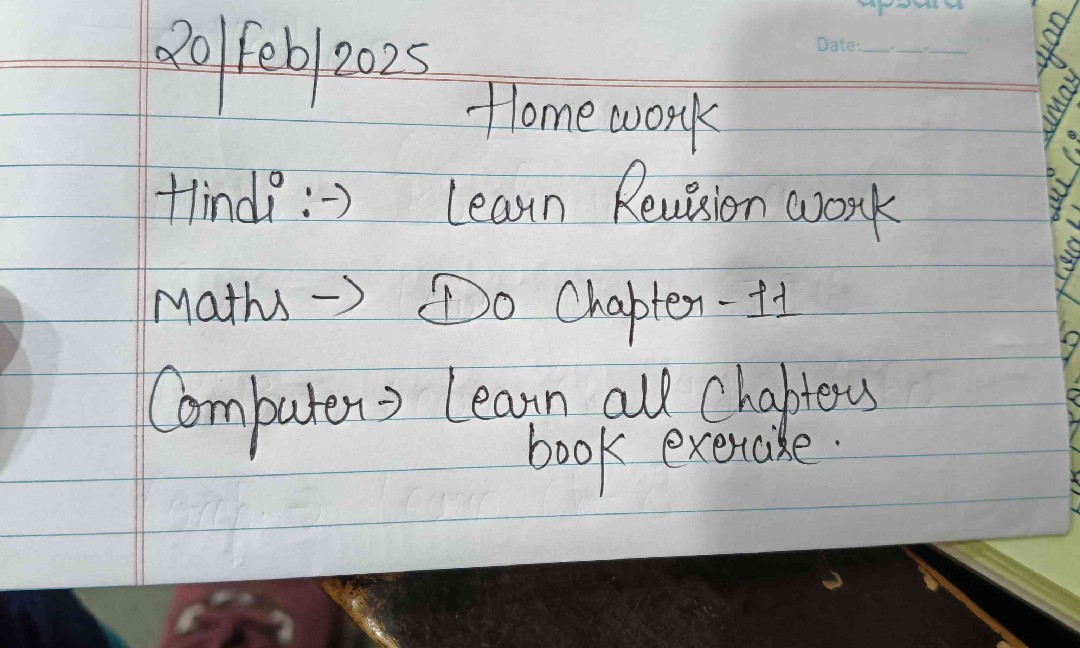 20/Feb/2025
Date:
Home work
Hindi :-> Learn Revision work
Maths -> Do Chapter - 11
Computer -> Learn all Chapters
book exercise.